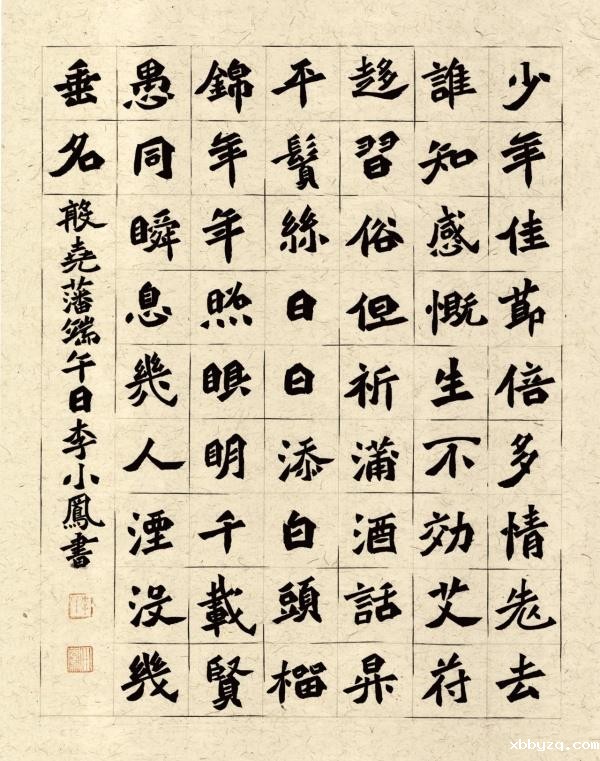 少年佳莭倍多情老去
誰知感慨生不効艾苻
趍習俗但祈蒲酒話昇
平鬢絲日日添白頭榴
錦年年照眼明千載賢
愚同瞬息幾人湮没幾
垂名
殷堯藩端午日李小鳳書
xbbyzq.com